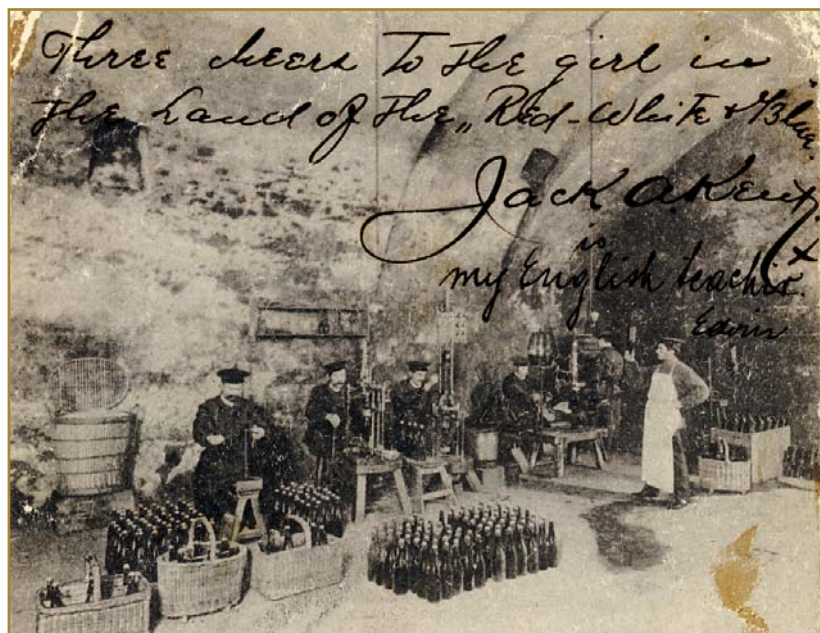 Three cheers to the girl in
the Land of the „Red-White & Blue."
Jack A. Kent
is
my English teacher.
Edwin